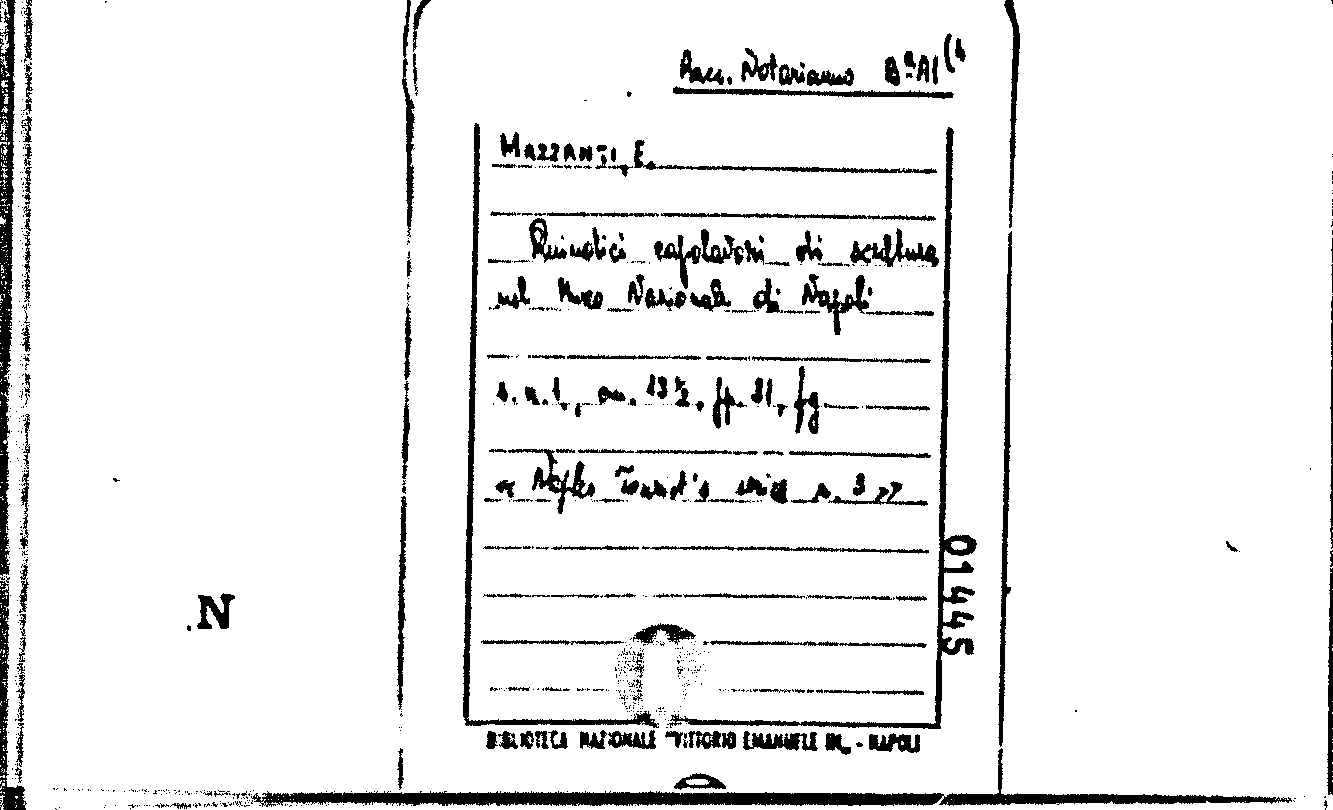 Racc. Notarianno Bª A1 (4
MAZZANTI, E.
Quindici capolavori di scultura
nel Museo Nazionale di Napoli
s.n.t., cm. 13½, pp. 31, fg
« Naples Tourist's series n. 3 »
01445
N
BIBLIOTECA NAZIONALE "VITTORIO EMANUELE III„ - NAPOLI